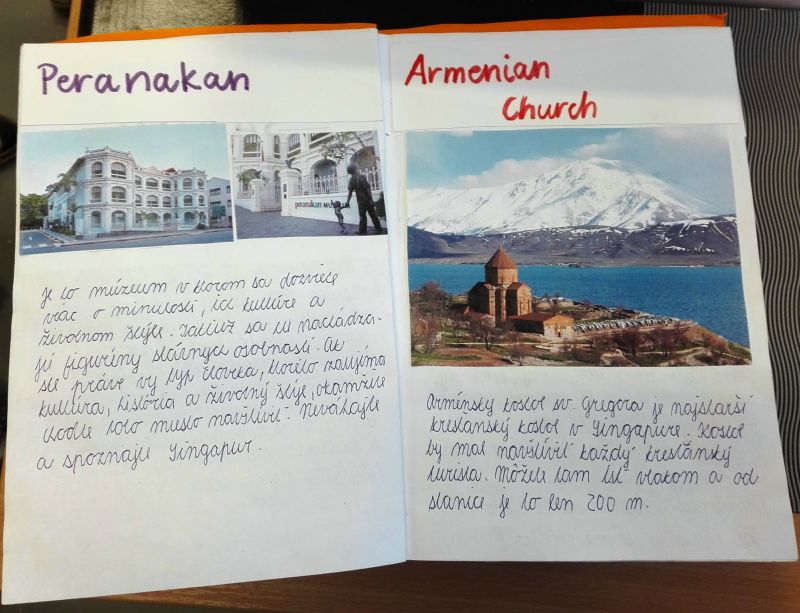 Peranakan
peranakan MU
Je to múzeum v ktorom sa dozviete
viac o minulosti, ich kultúre a
životnom štýle. Taktiež sa tu nachádza-
jú figuríny slávnych osobností. Ak
ste práve vy typ človeka, ktorého zaujíma
kultúra, história a životný štýl, okamžite
choďte toto miesto navštíviť. Neváhajte
a spoznajte Singapur.
Armenian
Church
Arménsky kostol sv. Gregora je najstarší
kresťanský kostol v Singapure. Kostol
by mal navštíviť každý kresťanský
turista. Môžete tam ísť vlakom a od
stanice je to len 200 m.